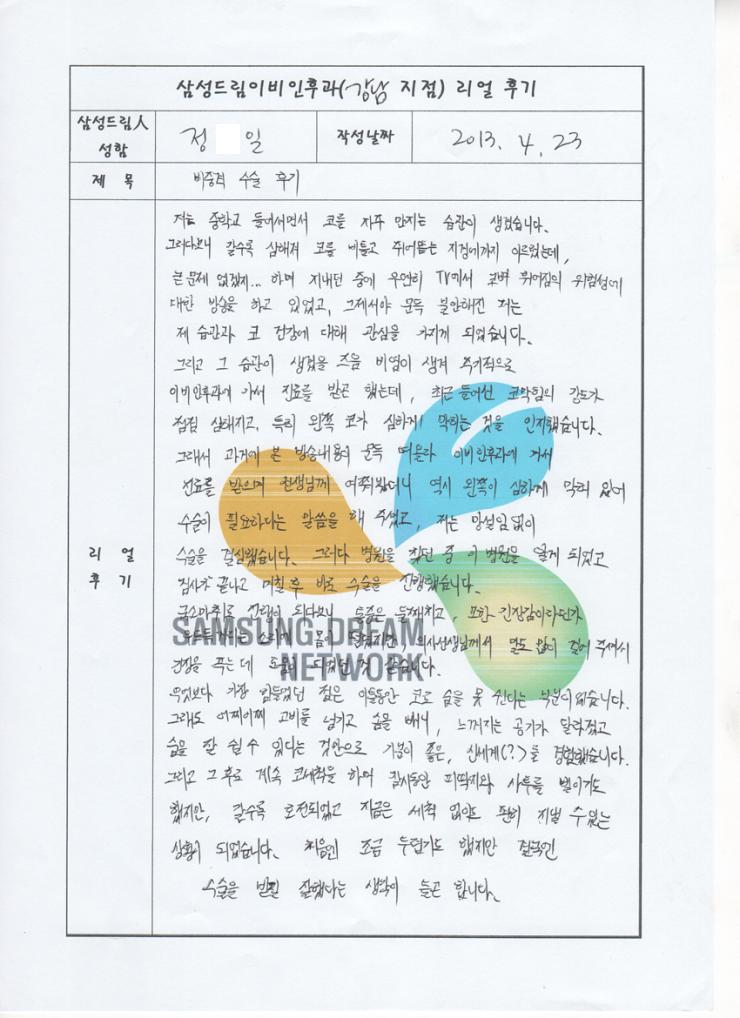 삼성드림이비인후과(강남 지점) 리얼 후기
삼성드림人 성함
정 일
작성날짜
2013. 4. 23
제 목
비중격 수술 후기
리 얼 후 기
저는 중학교 들어서면서 코를 자주 만지는 습관이 생겼습니다.
그러다보니 갈수록 심해져 코를 비틀고 쥐어뜯는 지경에까지 이르렀는데,
큰 문제 없겠지... 하며 지내던 중에 우연히 TV에서 코벽 휘어짐의 위험성에
대한 방송을 하고 있었고, 그제서야 문득 불안해진 저는
제 습관과 코 건강에 대해 관심을 가지게 되었습니다.
그리고 그 습관이 생겼을 즈음 비염이 생겨 주기적으로
이비인후과에 가서 진료를 받곤 했는데, 최근 들어선 코막힘의 강도가
점점 심해지고, 특히 왼쪽 코가 심하게 막히는 것을 인지했습니다.
그래서 과거에 본 방송내용이 문득 떠올라 이비인후과에 가서
진료를 받으며 선생님께 여쭤봤더니 역시 왼쪽이 심하게 막혀 있어
수술이 필요하다는 말씀을 해 주셨고, 저는 망설임 없이
수술을 결심했습니다. 그러다 병원을 찾던 중 이 병원을 알게 되었고
검사가 끝나고 며칠 후 바로 수술을 진행했습니다.
국소마취로 진행이 되다보니 통증은 둘째치고, 묘한 긴장감이라던가
소리에 몸이 의사선생님께서 말도 많이 걸어 주셔서
긴장을 푸는 데 도움이 되었던 것 같습니다.
무엇보다 가장 힘들었던 점은 이틀동안 코로 숨을 못 쉰다는 부분이었습니다.
그래도 어찌어찌 고비를 넘기고 솜을 빼니, 느껴지는 공기가 달라졌고
숨을 잘 쉴 수 있다는 것만으로 기분이 좋은, 신세계(?)를 경험했습니다.
그리고 그 후로 계속 코세척을 하며 잠시동안 피딱지와 사투를 벌이기도
했지만, 갈수록 호전되었고 지금은 세척 없이도 편히 지낼 수 있는
상황이 되었습니다. 처음엔 조금 두렵기도 했지만 결국엔
수술을 받길 잘했다는 생각이 들곤 합니다.
SAMSUNG DREAM
NETWORK